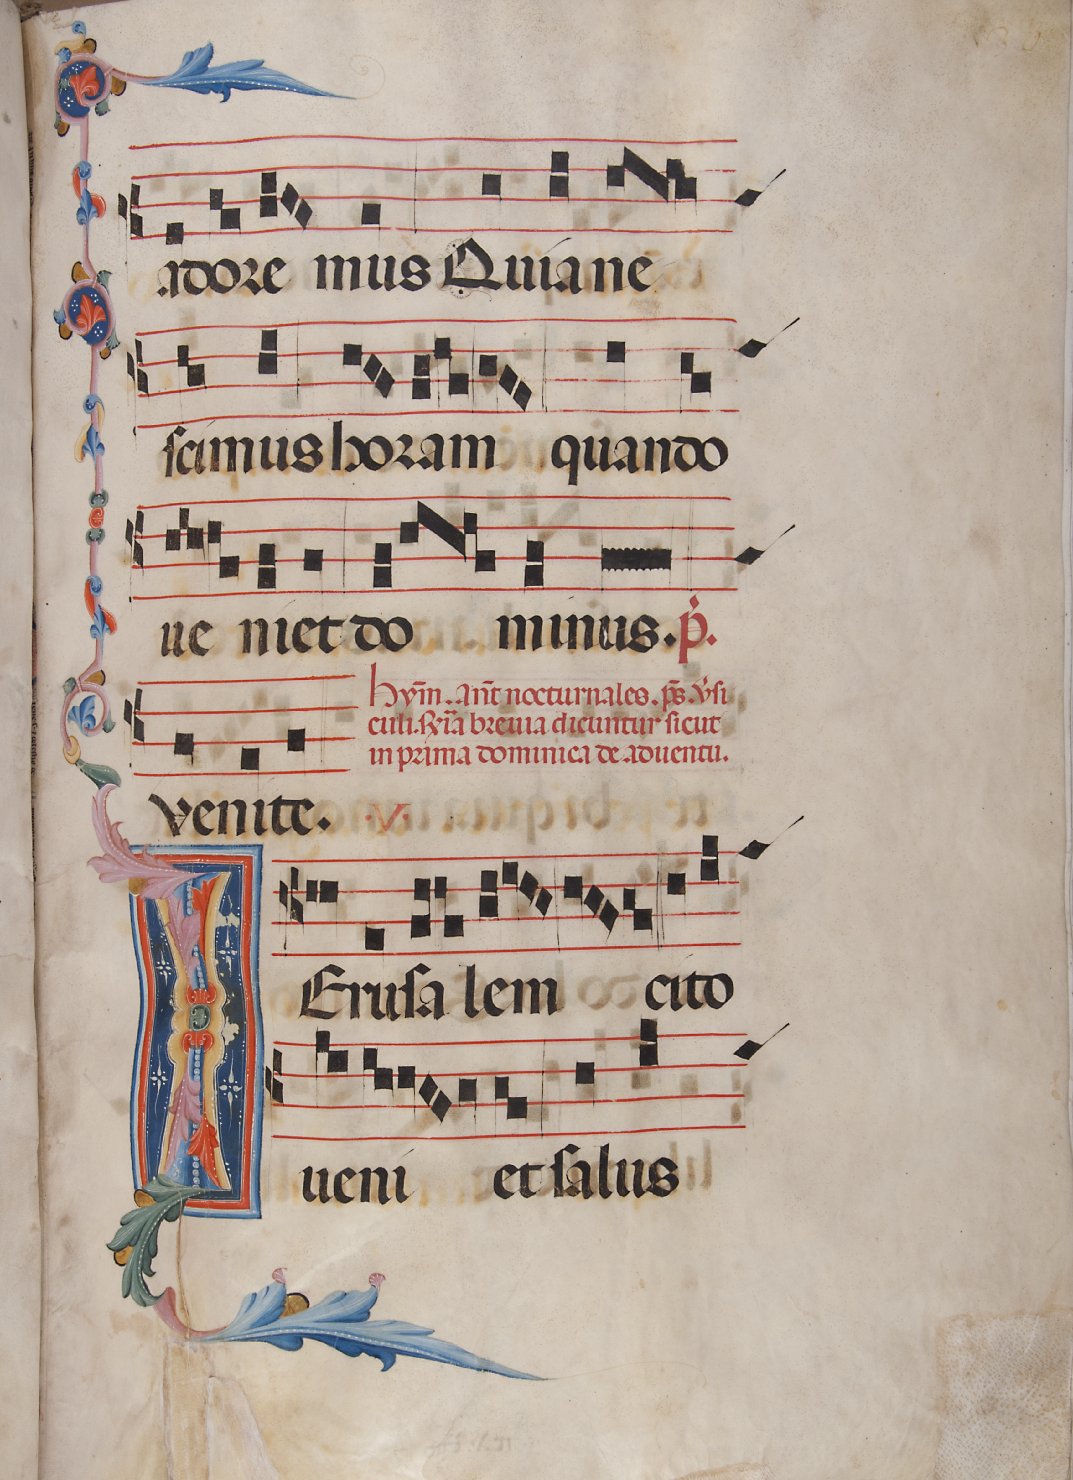 adore mus Quia ne
scimus horam quando
ue niet do minus. p̄.
hym̄. an̄t nocturnales. ps̄. v̄si
culi. r̄ia breuia dicuntur sicut
in prima dominica de aduentu.
venite. .v.
IErusa lem cito
ueni et salus